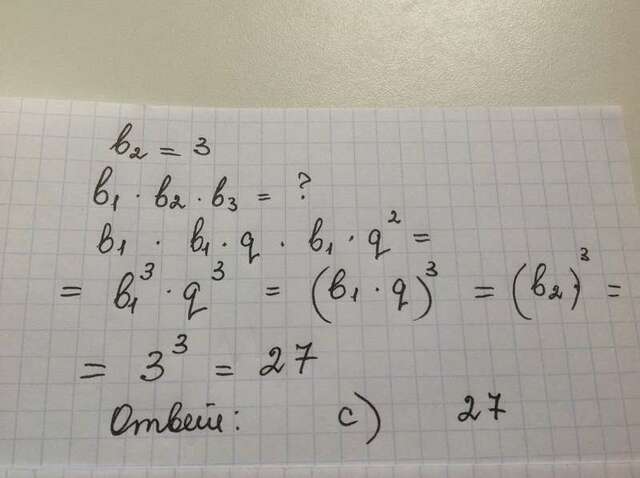 b₂ = 3
b₁ · b₂ · b₃ = ?
b₁ · b₁ · q · b₁ · q² =
= b₁³ · q³ = (b₁ · q)³ = (b₂)³ =
= 3³ = 27
Ответ: с) 27